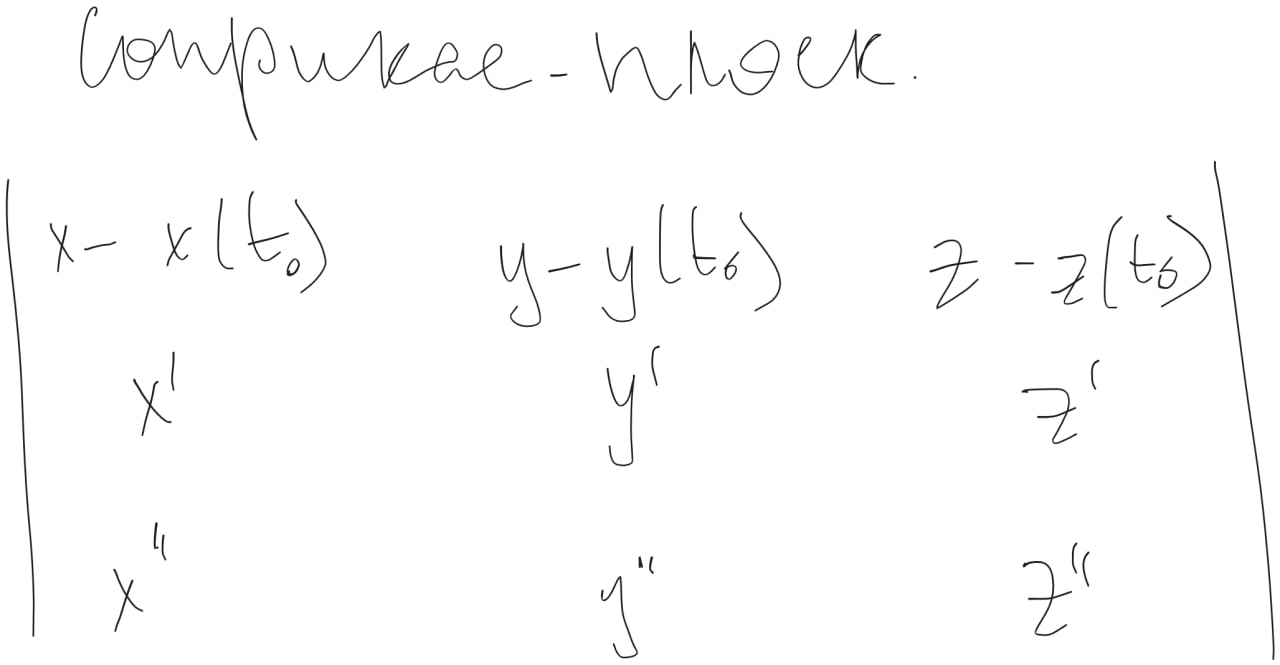 Соприкас-плоск.
x - x(t₀) y - y(t₀) z - z(t₀)
x' y' z'
x" y" z"